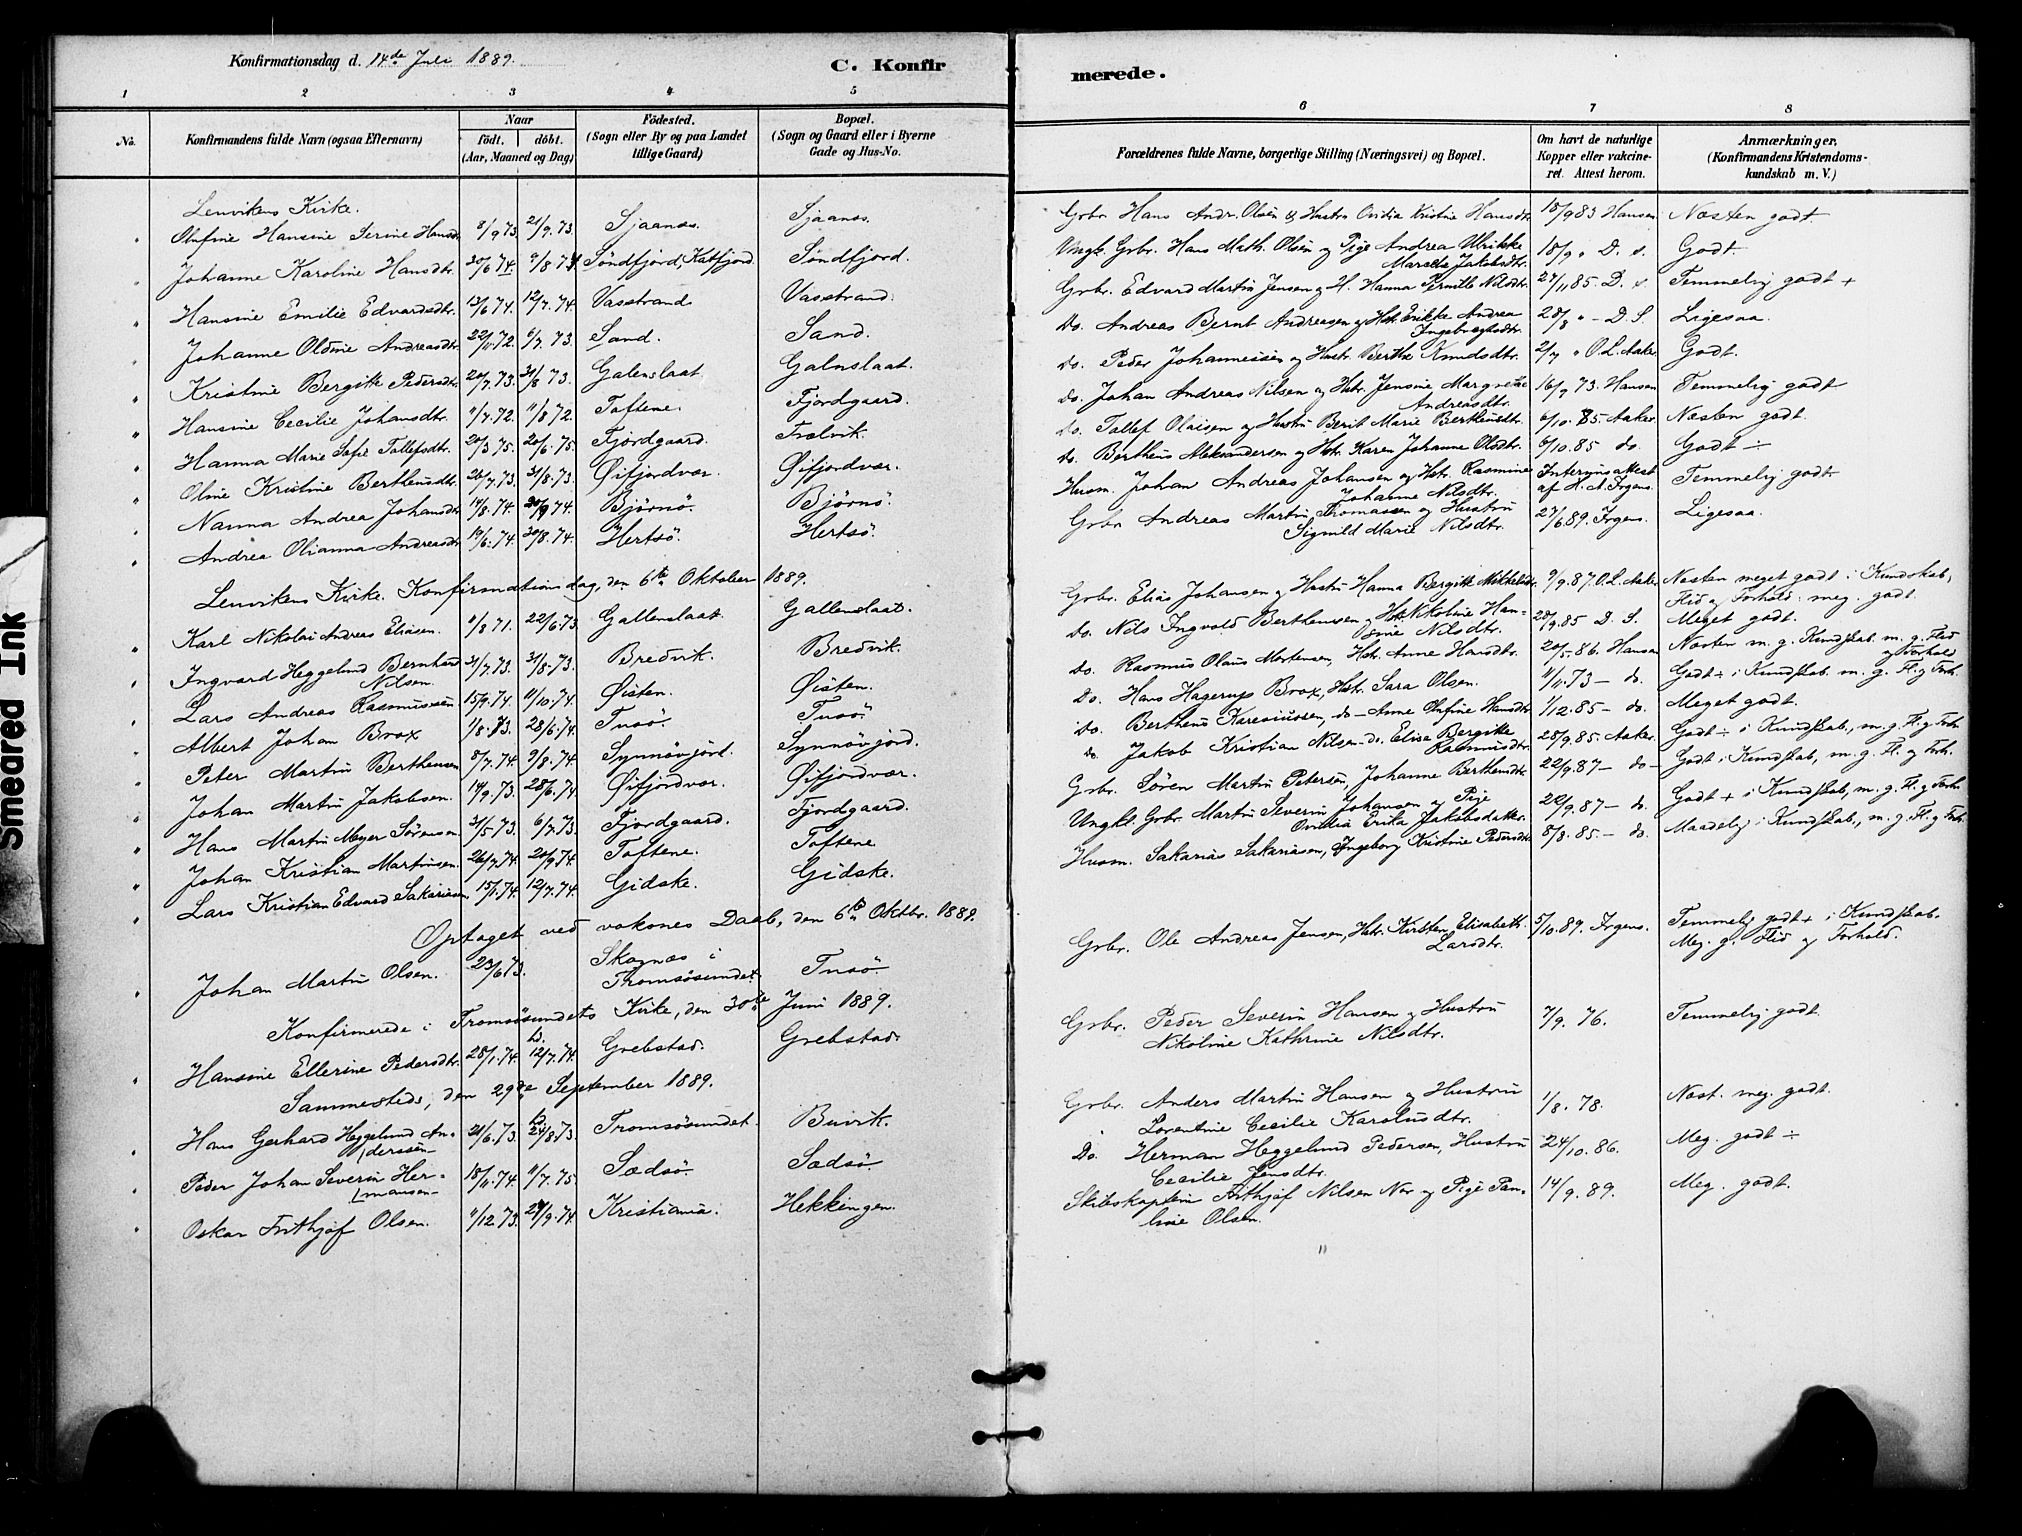 Konfirmationsdag d. 14de Juli 1889.
C. Konfir
merede.
1 2 3 4 5 6 7 8
No. Konfirmandens fulde Navn (ogsaa Efternavn) Naar födt. döbt. (Aar, Maaned og Dag) Födested. (Sogn eller By og paa Landet tillige Gaard) Bopæl. (Sogn og Gaard eller i Byerne Gade og Hus-No.
Forældrenes fulde Navne, borgerlige Stilling (Næringsvei) og Bopæl. Om havt de naturlige Kopper eller vakcineret. Attest herom. Anmærkninger. (Konfirmandens Kristendomskundskab m. V.)
Lenvikens Kirke.
" Olufine Hansine Serine Hansdtr 8/9 73. 21/9.73. Sjaanæs. Sjaanæs. Grbr. Hans Andr. Olsen & Hustru Ovidia Kristine Hansdtr 18/9 83 Hansen Næsten godt.
" Johanne Karoline Hansdtr. 30/6 74. 9/8 74. Söndfjord, Katfjord. Sondfjord. Ungk. Grbr. Hans Math. Olsen og Pige Andrea Ulrikke Jakobsdtr. 18/9 " D. s. Godt.
" Hansine Emilie Edvardsdtr. 13/6 74. 12/7.74. Vasstrand Vasstrand. Grbr. Edvard Martin Jensen og H. Hanna Pernille Nilsdtr. 27/11 85. D. s. Temmelig godt +
" Johanne Oldine Andreasdtr. 22/11.72. 6/7.73. Sand. Sand. Do. Andreas Bernt Andreasen og Hstr. Erikke Andrea Ingebrigtsdtr. 28/8 " - D. S. Ligesaa.
" Kristine Bergitte Pedersdtr. 20/7.73. 31/8 73. Galenslaat. Galnslaat. do. Peder Johannesen og Hustr. Berthe Knudsdtr. 2/7 " O. L. Aaker. Godt.
" Hansine Cecilie Johansdtr. 11/7.72. 11/8 72. Toftene. Fjordgaard. do. Johan Andreas Nilsen og Hstr. Jensine Margrethe Andreasdtr. 16/9 73. Hansen Temmelig godt
" Hanna Marie Sofie Tollefsdtr. 20/3 75. 20/6.75. Fjordgaard. Trælvik. do. Tollef Olaisen og Hustru Berit Marie Berthensdtr. 6/10.85. Aaker. Næsten godt.
" Oline Kristine Berthensdtr. 26/7.73. 31/8.73. Øifjordvær. Øifjordvær. do. Bertheus Aleksandersen og Hstr. Karen Johanne Olsdtr. 6/10.85 do. Godt ÷
" Nanna Andrea Johansdtr. 14/8.74. 20/9 74. Bjørnö. Bjørnö. Husm. Johan Andreas Johansen og Hstr. Rasmine Johanne Nilsdtr. Interimsattest af H. A. Irgens. Temmelig godt
" Andrea Olianna Andreasdtr. 19/6.74. 30/8.74. Hertsö. Hertsö. Grbr. Andreas Martin Thomassen og Hustru Sigmild Marie Nilsdtr. 27/6 89. Irgens. Ligesaa.
Lenvikens Kirke. Konfirmationsdag, den 6te Oktober 1889.
" Karl Nikolai Andreas Eliasen. 11/8 71. 22/6.73 Gallenslaat. Gallenslaat. Grbr. Elias Johansen og Hustru Hanna Bergitte Mikkelsdtr. 9/9.87. O. L. Aaker Næsten meget godt i Kundskab, Flid og Forhold meg. godt.
" Ingvard Heggelund Bernhard Nilsen. 31/7.73. 31/8.73. Bredvik. Bredvik. do. Nils Ingvald Berthensen og Hstr. Nikoline Hansine Nilsdtr. 20/9.85 D. S. Meget godt.
" Lars Andreas Rasmussen 15/9.74. 11/10.74. Øisten. Øisten. do. Rasmus Olaus Mortensen, Hstr. Anne Hansdtr. 20/5-86. Hansen Næsten m. g. Kundskab. m. g. Flid og Forhold
" Albert Johan Brox 1/8.73. 28/6.74. Tusö. Tusö. Do. Hans Hagerup Brox, Hstr. Sara Olsen. 11/11.73 - do. Godt ÷ i Kundskab. m. g. Fl. og Forh.
" Peter Martin Berthensen 8/7.74. 9/8.74. Synnövjord. Synnövjord. do. Bertheus Karesiussen, do - Anne Olufine Hansdtr 1/12.85 - do. Meget godt.
" Johan Martin Jakobsen. 14/9.73. 28/6.74. Øifjordvær. Øifjordvær. do Jakob Kristian Nilsen - do. Elise Bergitte Rasmusdtr. 28/9.85 Aaker. Godt ÷ i Kundskab., m. g. Fl. og Forh.
" Hans Martin Meyer Sörensen 31/5.73. 6/7.73. Fjordgaard. Fjordgaard. Grbr. Sören Martin Petersen, Johanne Berthensdtr 22/9.87 - do - Godt i Kundskab, m. g. Fl. og Forh.
" Johan Kristian Martinsen. 26/7.74. 20/9.74 Toftene. Toftene Ungkl. Grbr. Martin Severin Johansen og Pige Ovidia Erika Jakobsdatter. 22/9.87 - do. Godt + i Kundskab, m. g. Fl. og Forh.
" Lars Kristian Edvard Sakariasen. 15/1.74. 12/7.74. Gidske. Gidske. Husm. Sakarias Sakariasen, Ingeborg Kristine Pedersdtr 8/8.85 - do. Maadelig i Kundskab, m. g. Fl. og Forh.
Optaget ved voksnes Daab, den 6te Oktbr. 1889.
" Johan Martin Olsen. 23/6 73. Skognæs i Tromsösundet. Tusö. Grbr. Ole Andreas Jensen, Hstr. Kirsten Elisabeth Larsdtr. 5/10.89. Irgens. Temmelig godt + i Kundskab. Meg. g. Flid og Forhold.
Konfirmerede i Tromsösundets Kirke, den 30te Juni 1889.
" Hansine Ellerine Pedersdtr. 28/1.74. 12/7.74. Grebstad. Grebstad. Grbr. Peder Severin Hansen og Hustru Nikoline Kathrine Nilsdtr. 7/9.76. Temmelig godt.
Sammesteds, den 29de September 1889.
" Hans Gerhard Heggelund Anderssen 21/6.73. 24/8.73. Tromsösundet. Buvik. Grbr. Anders Martin Hansen og Hustru Lorentine Cecilie Karolusdtr. 1/8.78. Næst. meg. godt.
" Peder Johan Severin Hermansen 18/11.74. 11/7.75. Sædsö. Sædsö Do. Herman Heggelund Pedersen, Hustru Cecilie Jensdtr. 24/10.86. Meg. godt ÷
" Oskar Frithjof Olsen. 11/12.73. 27/9.74. Kristiania. Hekkingen. Skibskaptein Frithjof Nilsen Nor og Pige Pauline Olsen. 14/9.89. Meg. godt.
"
Smeared Ink